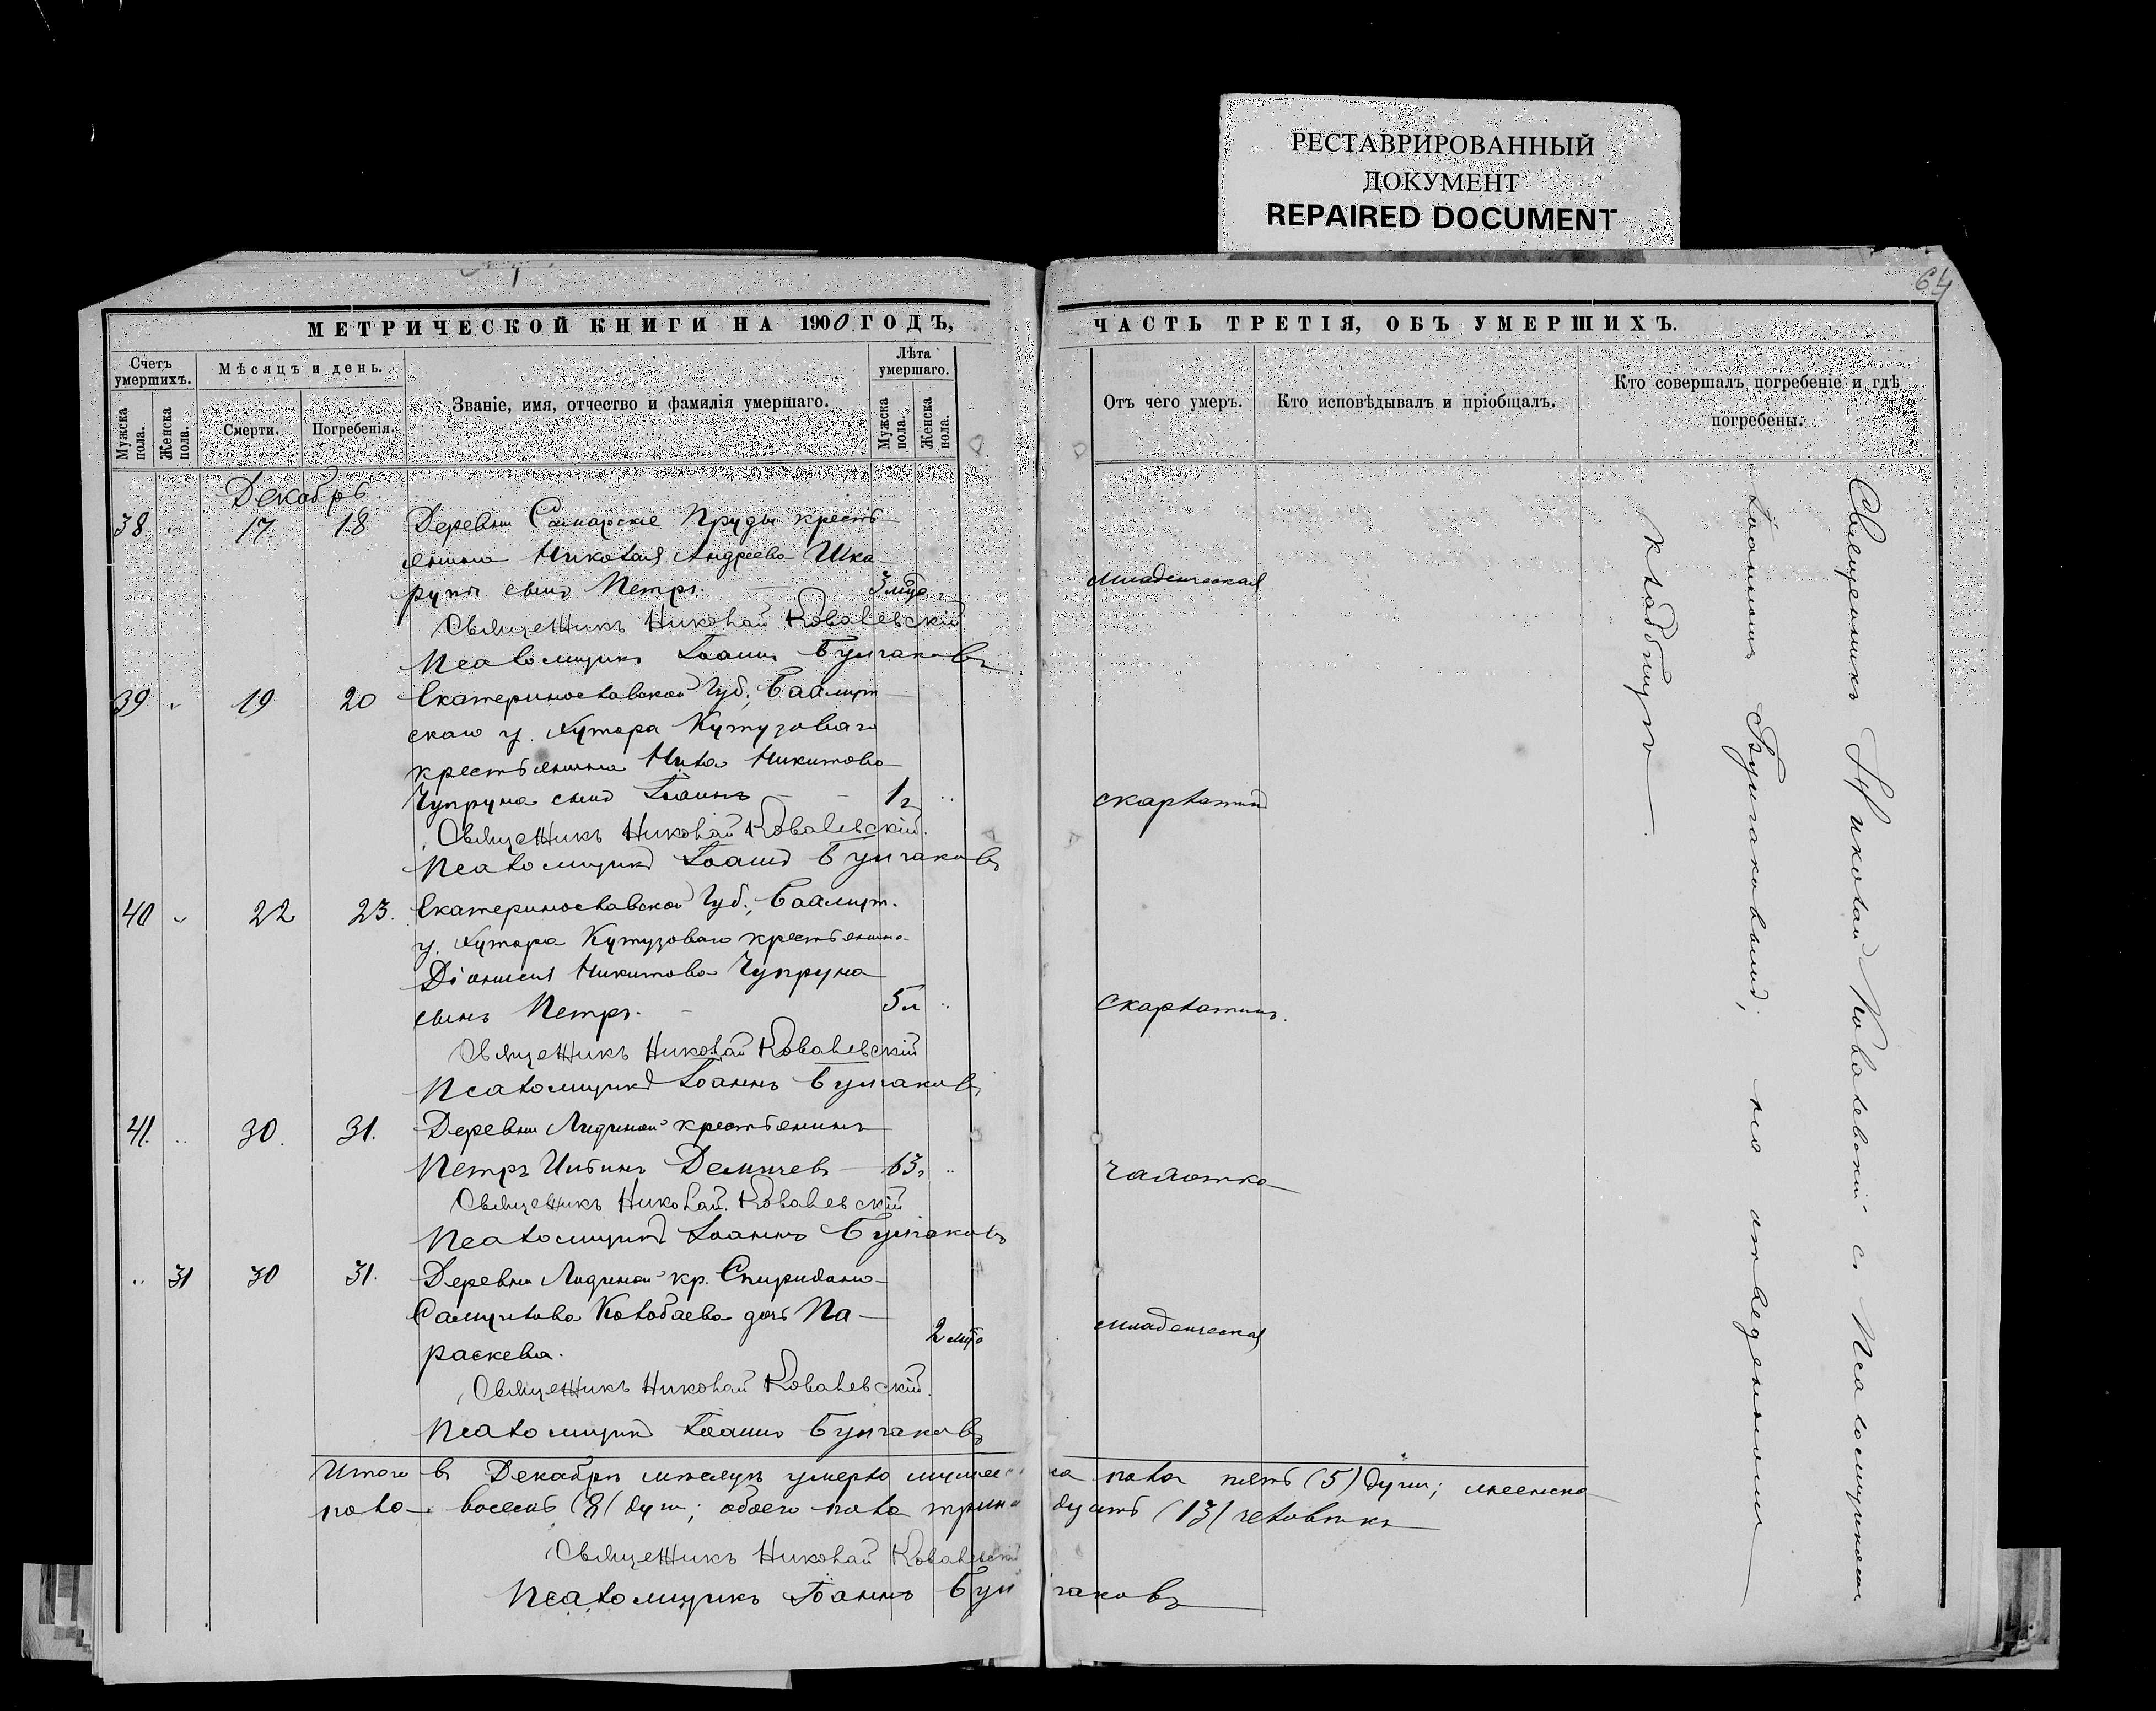 РЕСТАВРИРОВАННЫЙ
ДОКУМЕНТ
REPAIRED DOCUMENT
64
МЕТРИЧЕСКОЙ КНИГИ НА 1900 ГОДЪ,
Счетъ умершихъ.
Мужска пола.
Женска пола.
Мѣсяцъ и день.
Смерти.
Погребенія.
Званіе, имя, отчество и фамилія умершаго.
Лѣта умершаго.
Мужска пола.
Женска пола.
Декабрь.
38. " 17. 18 Деревни Самарскіе Пруды кресть-
янина Николая Андреева Шка-
рупы сынъ Петръ. 3 мцо
Священникъ Николай Ковалевскій
Псаломщикъ Іоаннъ Булгаковъ
39 " 19 20 Екатеринославской Губ., Бахмут-
скаго у. Хутора Кутузоваго
крестьянина Никитова
Чупруна сынъ Іоаннъ 1 г ..
Священникъ Николай Ковалевскій.
Псаломщикъ Іоаннъ Булгаковъ
40 " 22 23. Екатеринославской Губ., Бахмут.
у. Хутора Кутузоваго крестьянина
Діонисія Никитова Чупруна
сынъ Петръ. 5 л ..
Священникъ Николай Ковалевскій
Псаломщикъ Іоаннъ Булгаковъ
41. .. 30. 31. Деревни Лидиной крестьянинъ
Петръ Ильинъ Демичевъ 63 г ..
Священникъ Николай Ковалевскій
Псаломщикъ Іоаннъ Булгаковъ
.. 31 30 31. Деревни Лидиной кр. Спиридона
Самуилова Колобаева дочь Па-
раскева. 2 мцо
Священникъ Николай Ковалевскій.
Псаломщикъ Іоаннъ Булгаковъ
ЧАСТЬ ТРЕТІЯ, ОБЪ УМЕРШИХЪ.
Отъ чего умеръ.
Кто исповѣдывалъ и пріобщалъ.
Кто совершалъ погребеніе и гдѣ погребены.
младенческая
скарлатин
скарлатинъ.
чахотка
младенческая
Священникъ Николай Ковалевскій съ Псаломщикомъ
Іоанномъ Булгаковымъ, на отведенномъ
кладбищѣ
Итого въ Декабрѣ мѣсяцѣ умерло мужеска пола пять (5) душъ; женска
пола восемь (8) душъ; обоего пола тринадцать (13) человѣкъ
Священникъ Николай Ковалевскій
Псаломщикъ Іоаннъ Булгаковъ